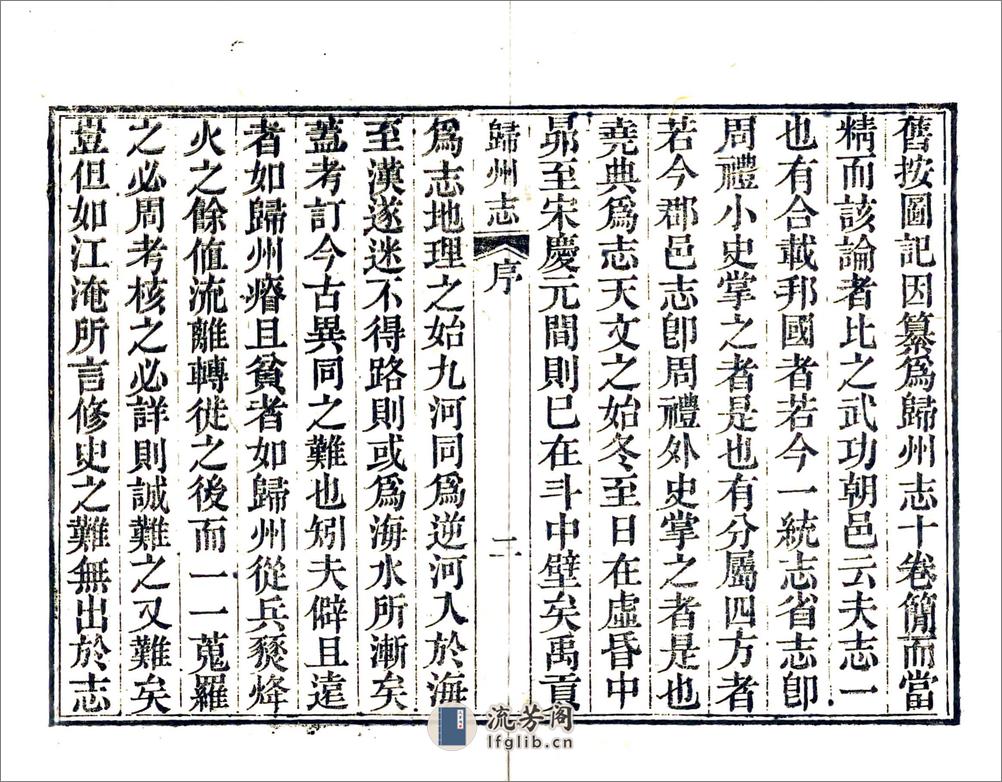 舊按圖記因纂爲歸州志十卷簡而當
精而該論者比之武功朝邑云夫志一
也有合載邦國者若今一統志省志卽
周禮小史掌之者是也有分屬四方者
若今郡邑志卽周禮外史掌之者是也
堯典爲志天文之始冬至日在虛昏中
昴至宋慶元間則已在斗中壁矣禹貢
歸州志 序 二
爲志地理之始九河同爲逆河入於海
至漢遂迷不得路則或爲海水所漸矣
蓋考訂今古異同之難也矧夫僻且遠
者如歸州瘠且貧者如歸州從兵燹烽
火之餘值流離轉徙之後而一一蒐羅
之必周考核之必詳則誠難之又難矣
豈但如江淹所言修史之難無出於志
流芳阁
lfglib.cn